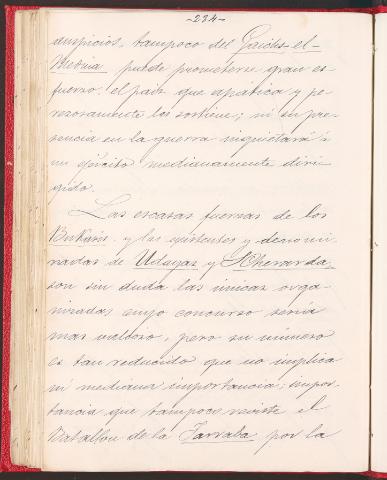 -234-
auspicios, tampoco del Gaichs-el-
Mebnia puede prometerse gran es-
fuerzo. el pais que apatica y pe-
rezosamente los sostiene; ni su pre-
sencia en la guerra inquietará á
un ejército medianamente diri-
gido.
Las escasas fuerzas de los
Bukáris y las existentes y denomi-
nadas de Udayas y Cherarda,
son sin duda las únicas orga-
nizadas cuyo concurso sería
mas valioso, pero su número
es tan reducido que no implica
ni mediana importancia; impor-
tancia que tampoco reviste el
Batallon de la Jarraba por la